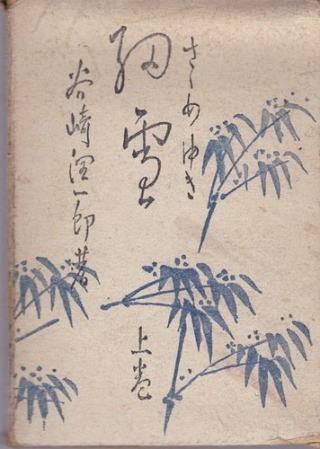 さゝめゆき
細雪
谷崎潤一郎著
上巻